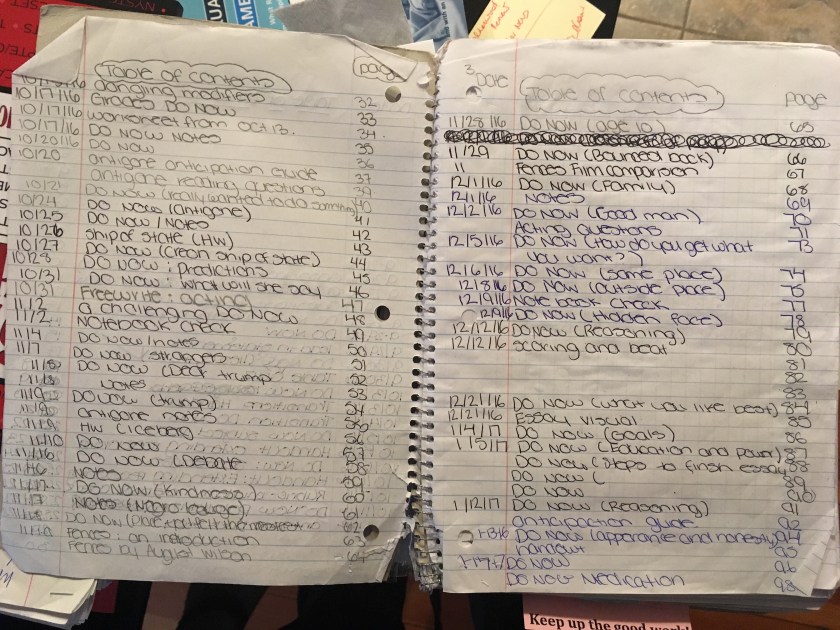 Table of contents
page
10/17/16 danging modifiers 32
10/17/16 Grades Do NOW 33
10/17/16 worksheet from oct 13. 34
10/17/16 DO NOW NOTES 35
10/20/16 DO NOW 36
10/20 antigone anticipation guide 37
antigone reading questions 39
10/21 DO NOW (really wanted to do something) 40
10/24 DO NOW (antigone) 41
10/25 DO NOW / Notes 42
10/26 ship of state (HW) 43
10/27 DO NOW (creon ship of state) 44
10/28 DO NOW: predictions 45
10/31 DO NOW: what will she say 46
10/31 Freewrite: acting 47
11/2 a challenging DO NOW 48
11/2 Notebook check 49
11/4 DO NOW/notes 50
11/7 DO NOW (strangers 51
11/8 DO NOW (Dear trump 52
11/8 Notes 53
11/9 DO NOW (trump) 54
11/9 antigone notes 55
HW (iceberg 56
11/10 DO NOW 57
11/16 DO NOW (Debate 58
Notes 59
DO NOW (kindness) 60
11/17 Notes 61
DO NOW 62
Fences: an introduction 63
Fences by August Wilson 64
3 Date Table of contents page
11/28/16 DO NOW (age 10) 65
11/29 DO NOW (Bounced back) 66
11 Fences Film comparison 67
12/1/16 DO NOW (Family) 68
12/1/16 NOTES 69
12/2/16 DO NOW (Good man) 70
Acting questions 71
12/5/16 DO NOW (How do you get what 73
you want?)
12/6/16 DO NOW (same place) 74
12/8/16 DO NOW (outside place)
12/9/16 Note book check 77
12/9/16 DO NOW (Hidden face) 78
12/12/16 DO NOW (Reasoning) 79
12/12/16 scoring and beat 80
81
82
83
12/21/16 DO NOW (what you like best) 84
12/21/16 Essay visual 85
1/4/17 DO NOW (Goals) 86
1/5/17 DO NOW (Education and power) 87
DO NOW (steps to finish essay 88
DO NOW ( 89
DO NOW 90
1/12/17 DO NOW (Reasoning) 91
anticipaction guide 92
DO NOW (apparance and honesty 94
handout 95
DO NOW 96
DO NOW Medication 98
Keep up the good work!